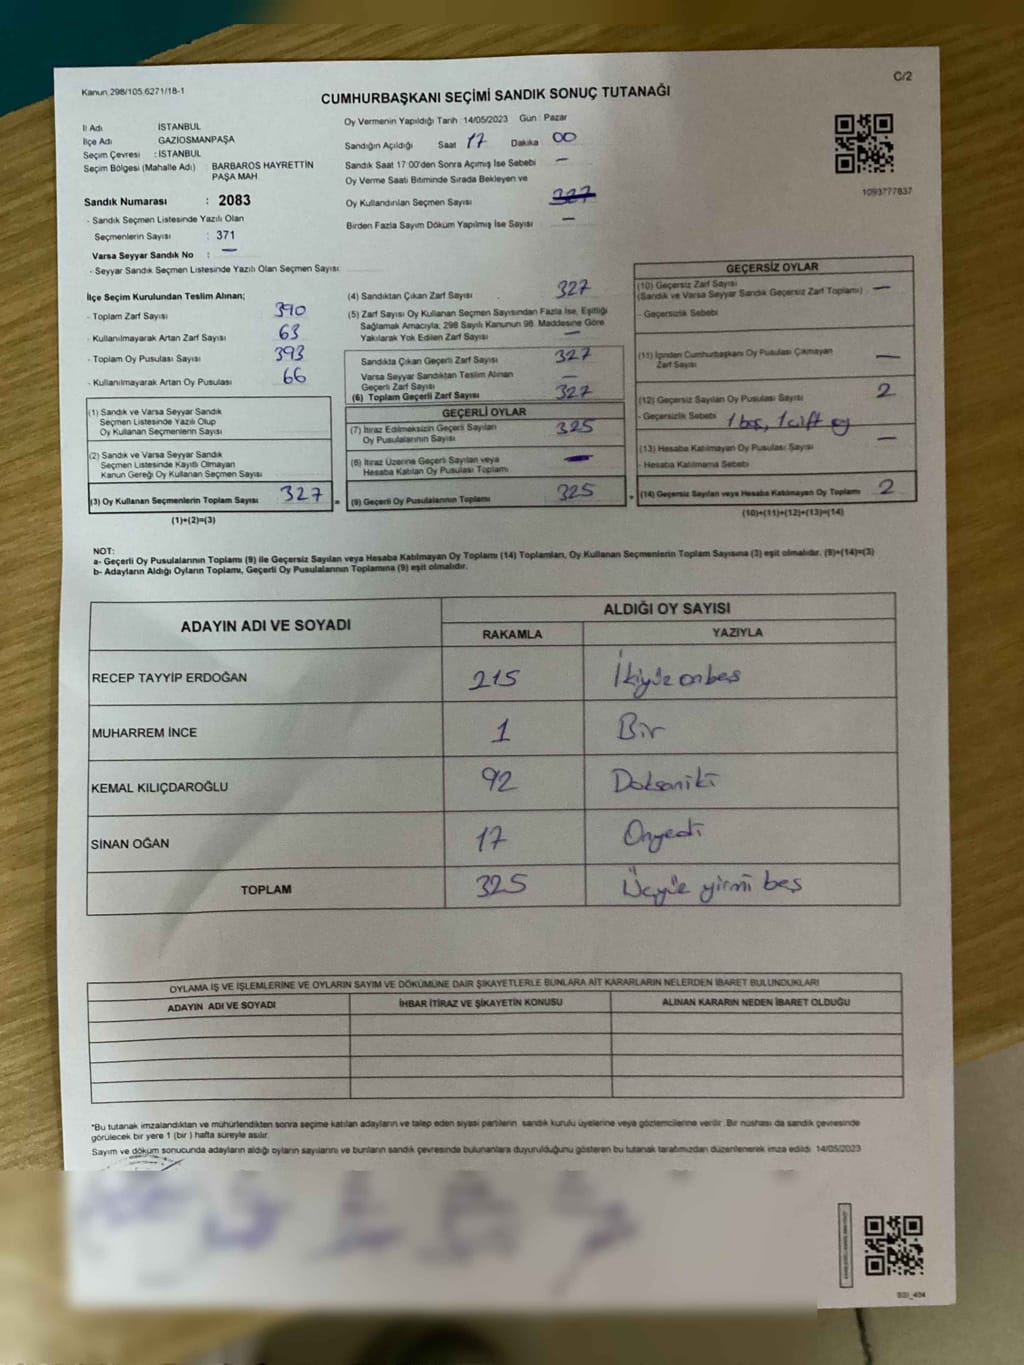 Kanun 298/105.6271/18-1
C/2
CUMHURBAŞKANI SEÇİMİ SANDIK SONUÇ TUTANAĞI
İl Adı İSTANBUL
İlçe Adı GAZİOSMANPAŞA
Seçim Çevresi : İSTANBUL
Seçim Bölgesi (Mahalle Adı) BARBAROS HAYRETTİN
PAŞA MAH
Sandık Numarası : 2083
- Sandık Seçmen Listesinde Yazılı Olan
Seçmenlerin Sayısı : 371
Varsa Seyyar Sandık No : —
- Seyyar Sandık Seçmen Listesinde Yazılı Olan Seçmen Sayısı:
Oy Vermenin Yapıldığı Tarih :14/05/2023 Gün : Pazar
Sandığın Açıldığı Saat 17 Dakika 00
Sandık Saat 17:00'den Sonra Açımış İse Sebebi —
Oy Verme Saati Bitiminde Sırada Bekleyen ve
Oy Kullandırılan Seçmen Sayısı 327
Birden Fazla Sayım Döküm Yapılmış İse Sayısı —
1093777837
İlçe Seçim Kurulundan Teslim Alınan;
- Toplam Zarf Sayısı 390
- Kullanılmayarak Artan Zarf Sayısı 63
- Toplam Oy Pusulası Sayısı 393
- Kullanılmayarak Artan Oy Pusulası 66
(1) Sandık ve Varsa Seyyar Sandık
Seçmen Listesinde Yazılı Olup
Oy Kullanan Seçmenlerin Sayısı
(2) Sandık ve Varsa Seyyar Sandık
Seçmen Listesinde Kayıtlı Olmayan
Kanun Gereği Oy Kullanan Seçmen Sayısı
(3) Oy Kullanan Seçmenlerin Toplam Sayısı 327 =
(1)+(2)=(3)
(4) Sandıktan Çıkan Zarf Sayısı 327
(5) Zarf Sayısı Oy Kullanan Seçmen Sayısından Fazla İse, Eşitliği
Sağlamak Amacıyla; 298 Sayılı Kanunun 98. Maddesine Göre
Yakılarak Yok Edilen Zarf Sayısı —
Sandıkta Çıkan Geçerli Zarf Sayısı 327
Varsa Seyyar Sandıktan Teslim Alınan
Geçerli Zarf Sayısı —
(6) Toplam Geçerli Zarf Sayısı 327
GEÇERLİ OYLAR
(7) İtiraz Edilmeksizin Geçerli Sayılan
Oy Pusulalarının Sayısı 325
(8) İtiraz Üzerine Geçerli Sayılan veya
Hesaba Katılan Oy Pusulası Toplamı —
(9) Geçerli Oy Pusulalarının Toplamı 325 +
GEÇERSİZ OYLAR
(10) Geçersiz Zarf Sayısı
(Sandık ve Varsa Seyyar Sandık Geçersiz Zarf Toplamı) —
- Geçersizlik Sebebi
(11) İçinden Cumhurbaşkanı Oy Pusulası Çıkmayan
Zarf Sayısı —
(12) Geçersiz Sayılan Oy Pusulası Sayısı 2
- Geçersizlik Sebebi 1 boş, 1 çift oy
(13) Hesaba Katılmayan Oy Pusulası Sayısı —
- Hesaba Katılmama Sebebi
(14) Geçersiz Sayılan veya Hesaba Katılmayan Oy Toplamı 2
(10)+(11)+(12)+(13)=(14)
NOT:
a- Geçerli Oy Pusulalarının Toplamı (9) ile Geçersiz Sayılan veya Hesaba Katılmayan Oy Toplamı (14) Toplamları, Oy Kullanan Seçmenlerin Toplam Sayısına (3) eşit olmalıdır. (9)+(14)=(3)
b- Adayların Aldığı Oyların Toplamı, Geçerli Oy Pusulalarının Toplamına (9) eşit olmalıdır.
ADAYIN ADI VE SOYADI ALDIĞI OY SAYISI
RAKAMLA YAZIYLA
RECEP TAYYİP ERDOĞAN 215 İkiyüzonbeş
MUHARREM İNCE 1 Bir
KEMAL KILIÇDAROĞLU 92 Doksaniki
SİNAN OĞAN 17 Onyedi
TOPLAM 325 Üçyüz yirmi beş
OYLAMA İŞ VE İŞLEMLERİNE VE OYLARIN SAYIM VE DÖKÜMÜNE DAİR ŞİKAYETLERLE BUNLARA AİT KARARLARIN NELERDEN İBARET BULUNDUKLARI
ADAYIN ADI VE SOYADI İHBAR İTİRAZ VE ŞİKAYETİN KONUSU ALINAN KARARIN NEDEN İBARET OLDUĞU
"Bu tutanak imzalandıktan ve mühürlendikten sonra seçime katılan adayların ve talep eden siyasi partilerin sandık kurulu üyelerine veya gözlemcilerine verilir. Bir nushası da sandık çevresinde
görülecek bir yere 1 (bir ) hafta süreyle asılır.
Sayım ve döküm sonucunda adayların aldığı oyların sayılarını ve bunların sandık çevresinde bulunanlara duyurulduğunu gösteren bu tutanak tarafımızdan düzenlenerek imza edildi 14/05/2023